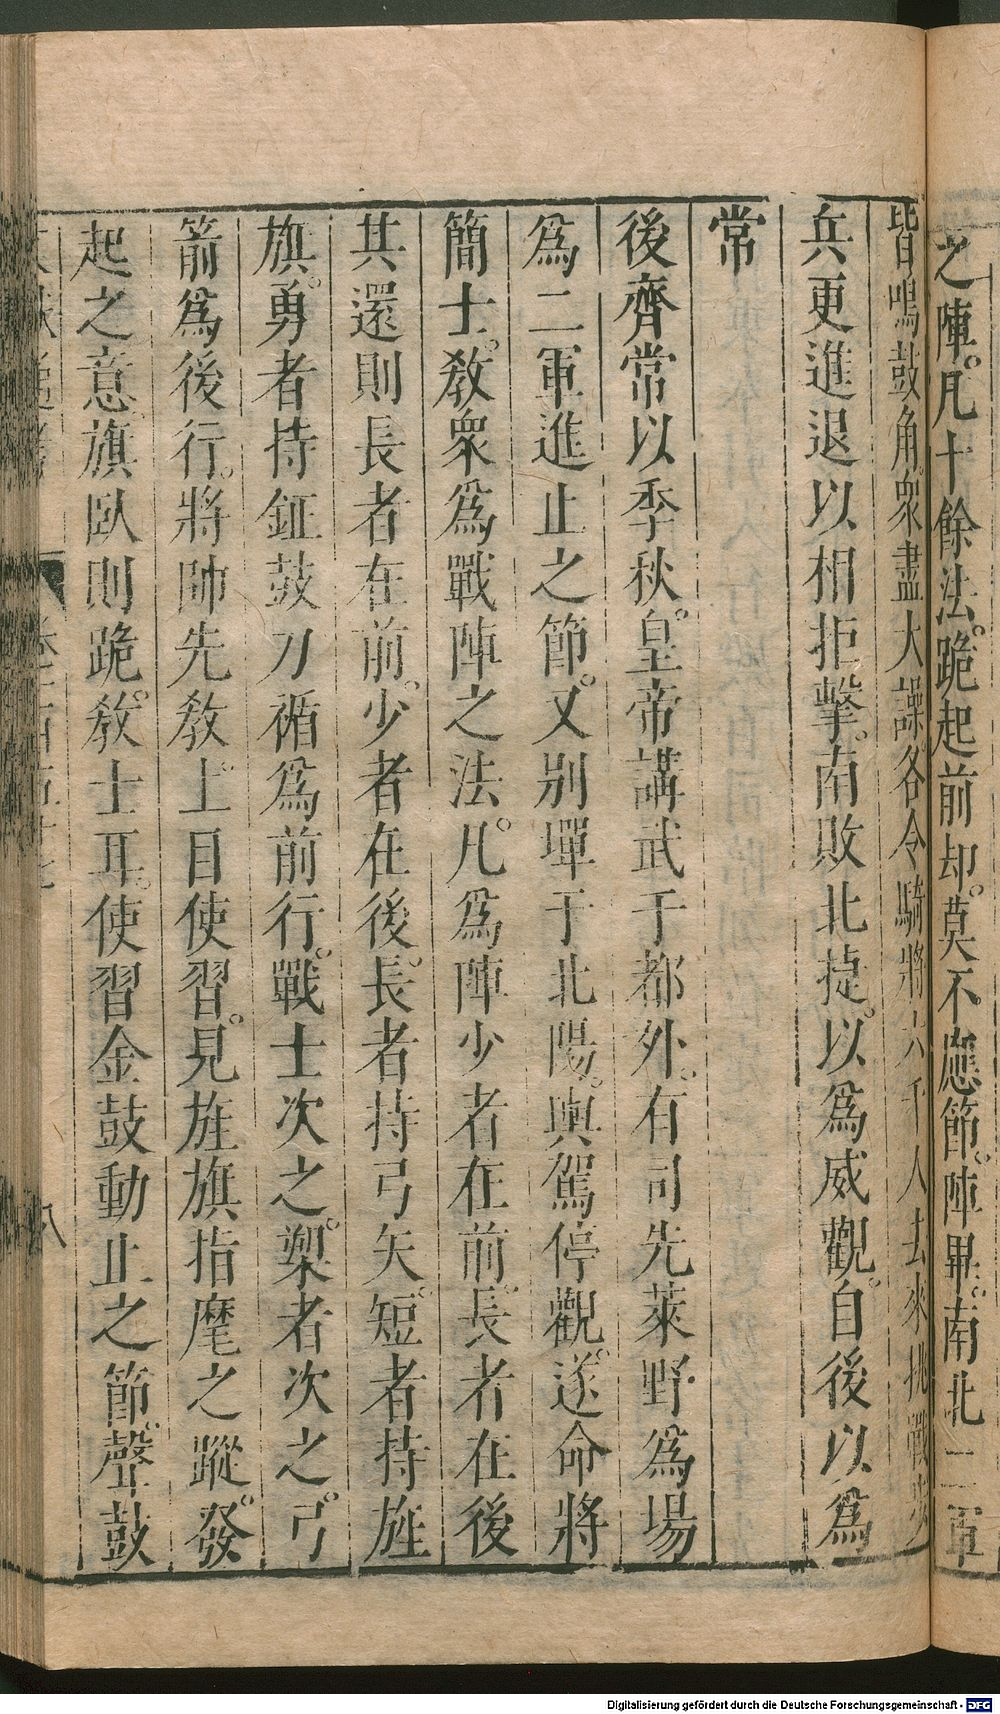 之陣凡十餘法跪起前却莫不應節陣畢南北二軍
皆鳴鼓角衆盡大譟各令騎將六千人去來挑戰步
兵更進退以相拒擊南敗北捷以為威觀自後以為
常
後齊常以季秋皇帝講武于都外有司先萊野為場
為二軍進止之節又别墠于北陽輿駕停觀遂命將
簡士教衆為戰陣之法凡為陣少者在前長者在後
其還則長者在前少者在後長者持弓矢短者持旌
旗勇者持鉦鼓刀楯為前行戰士次之槊者次之弓
箭為後行將帥先教士目使習見旌旗指麾之蹤發
起之意旗臥則跪教士耳使習金鼓動止之節聲鼓
Digitalisierung gefördert durch die Deutsche Forschungsgemeinschaft - DFG